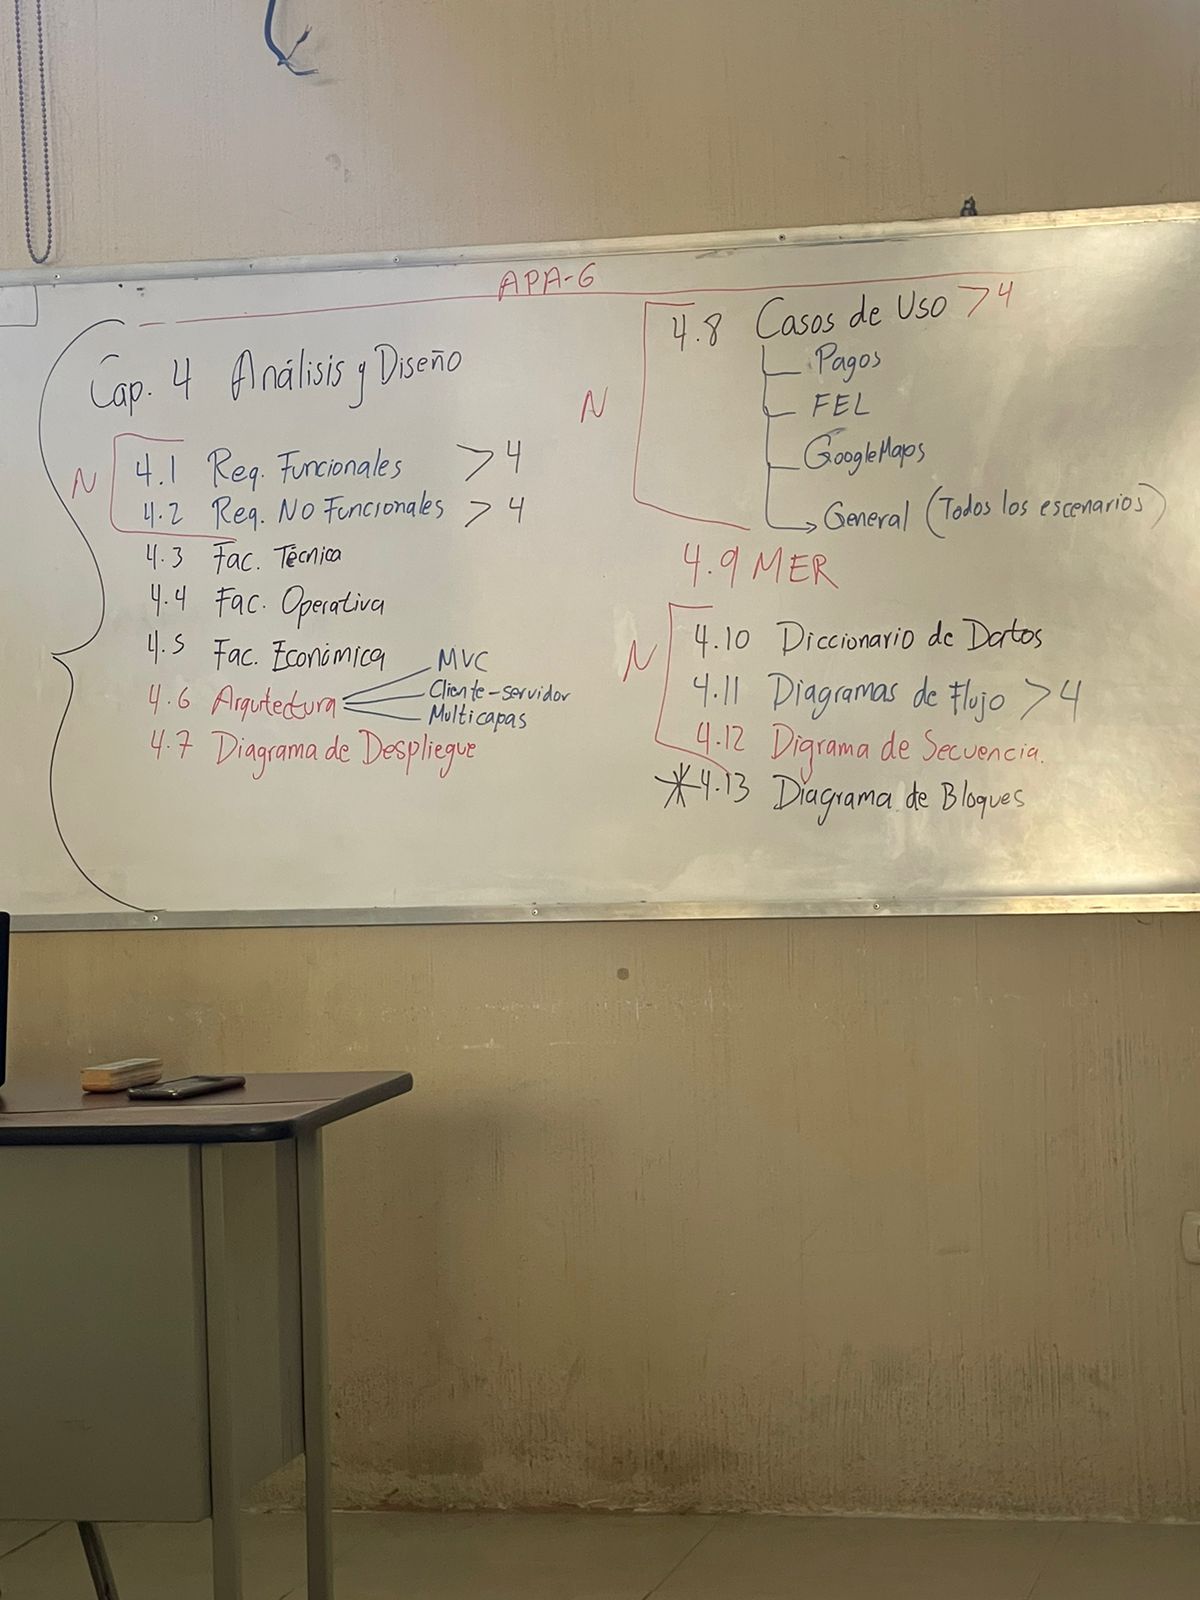 APA-6
Cap. 4 Análisis y Diseño
N
4.1 Req. Funcionales > 4
4.2 Req. No Funcionales > 4
4.3 Fac. Técnica
4.4 Fac. Operativa
4.5 Fac. Económica
4.6 Arquitectura
MVC
Cliente-servidor
Multicapas
4.7 Diagrama de Despliegue
N
4.8 Casos de Uso >4
Pagos
FEL
GoogleMaps
General (Todos los escenarios)
4.9 MER
N
4.10 Diccionario de Datos
4.11 Diagramas de Flujo >4
4.12 Digrama de Secuencia.
*4.13 Diagrama de Bloques